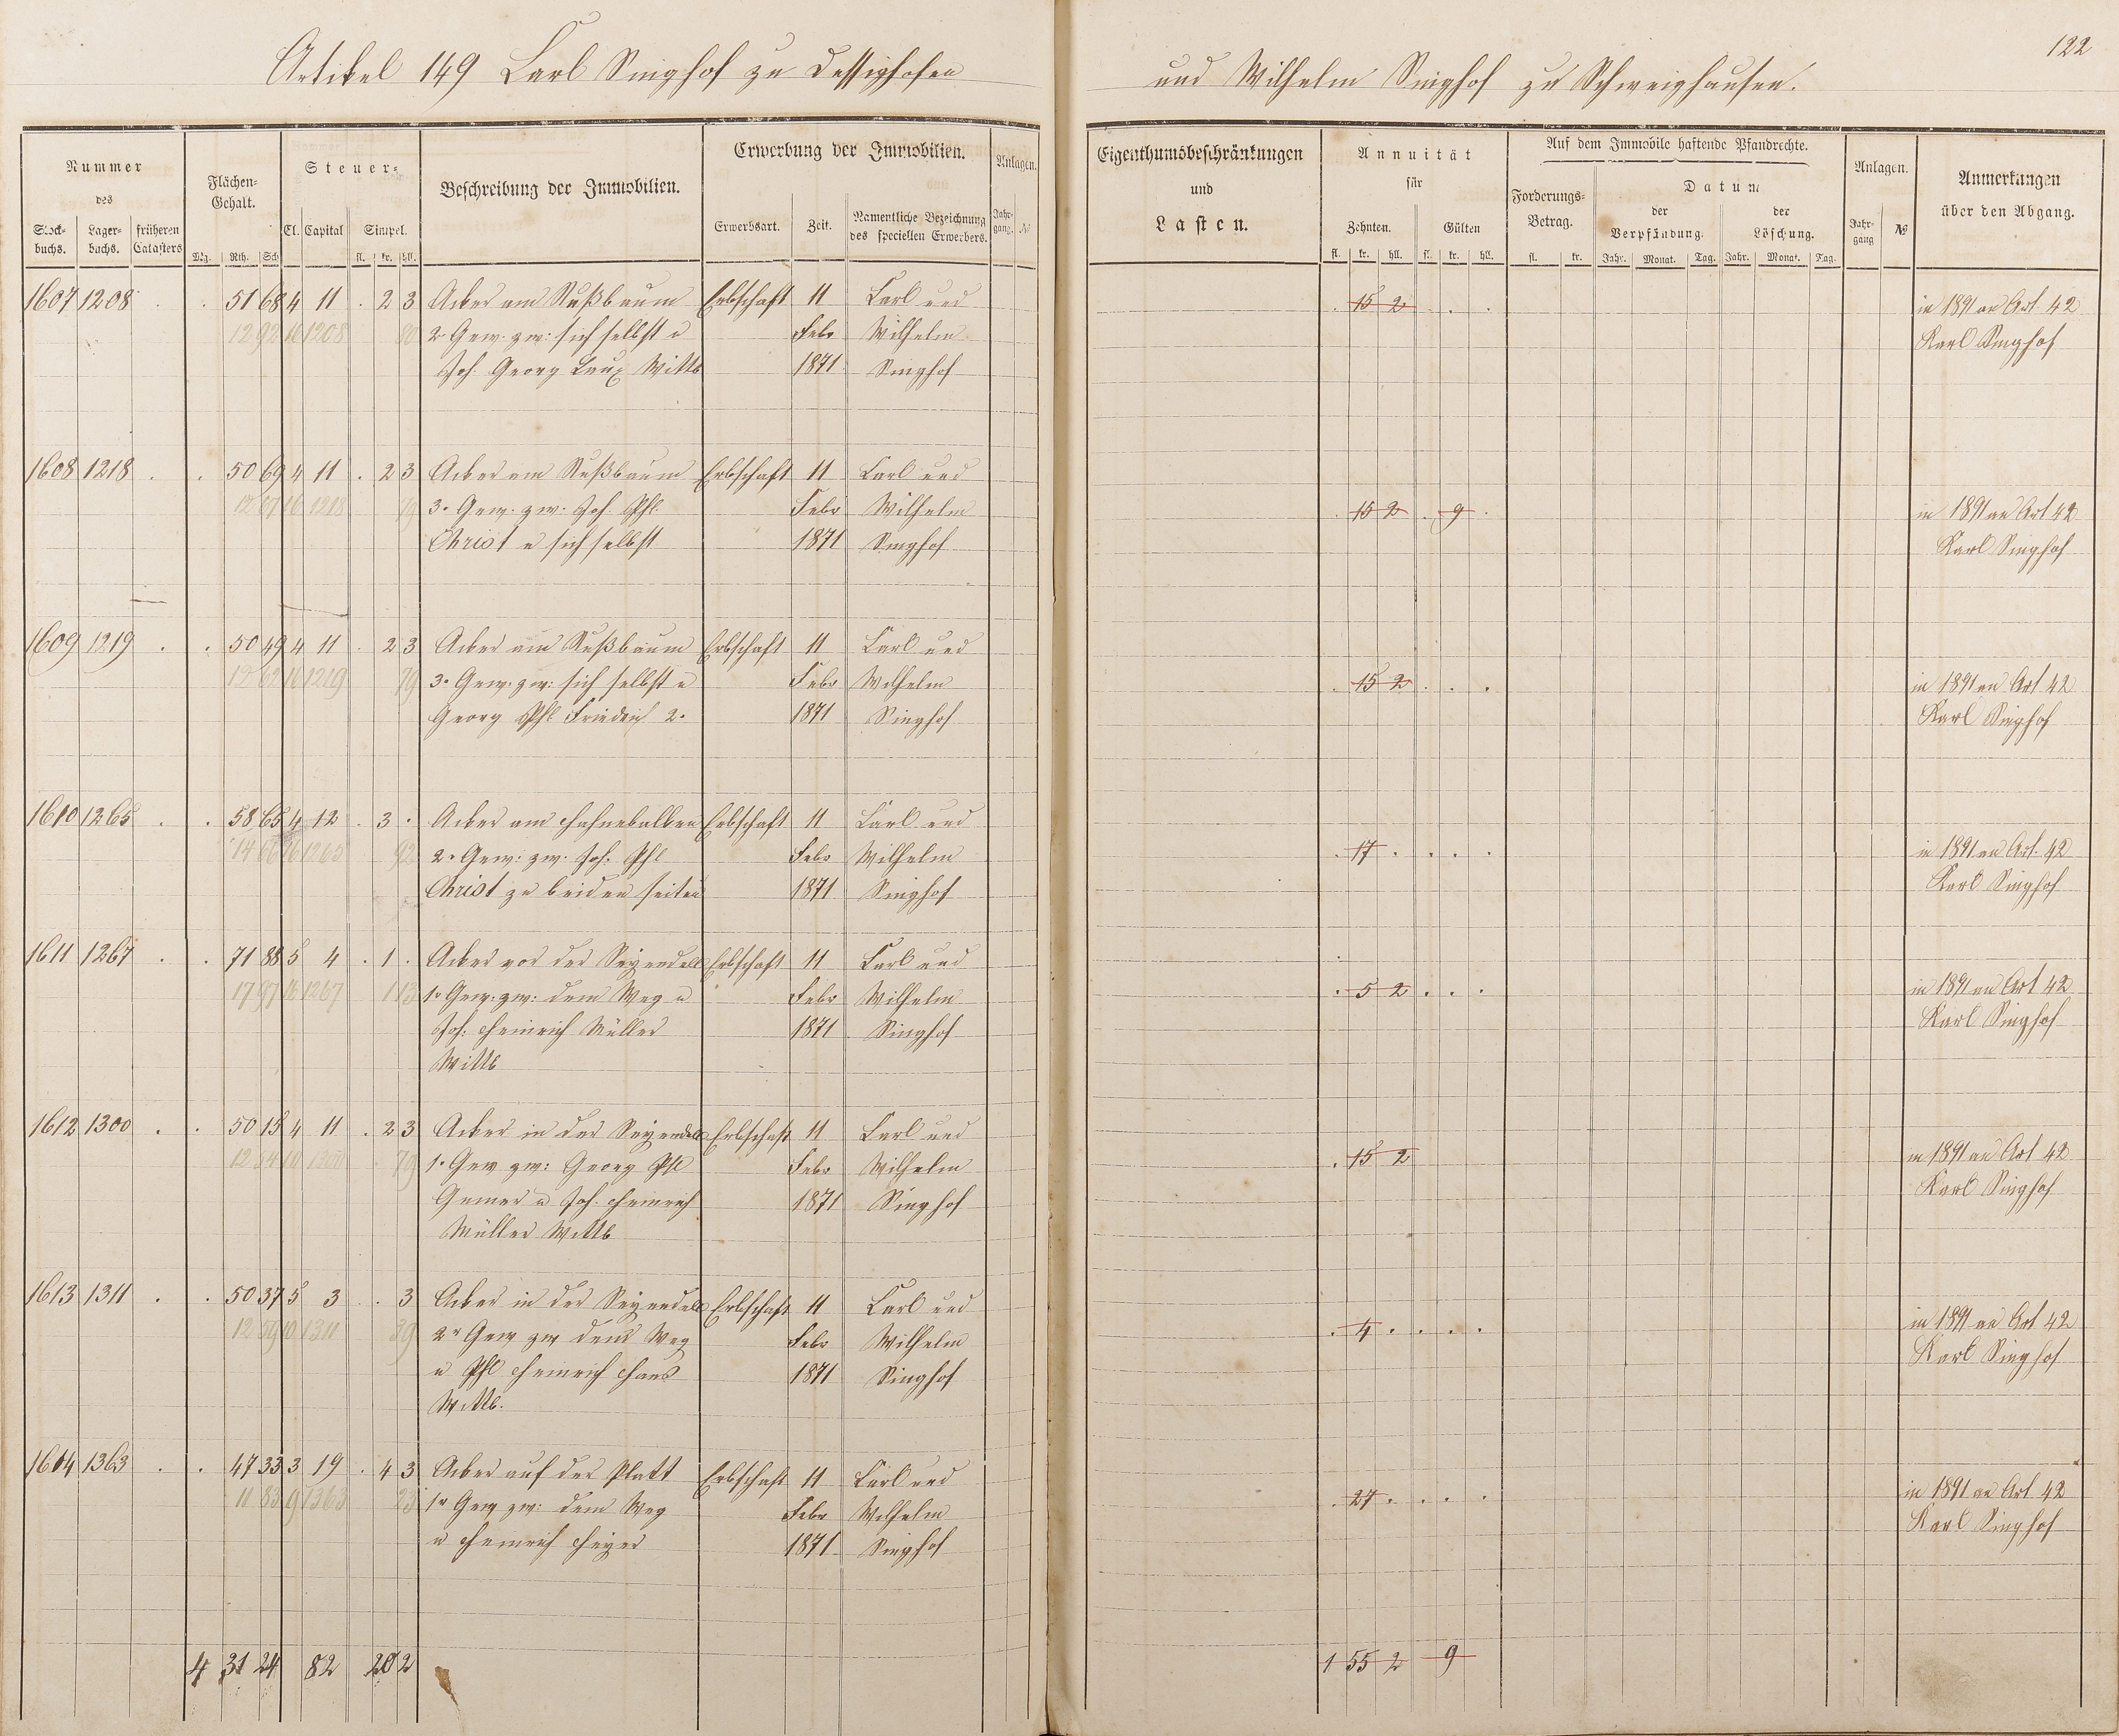 Artikel 149 Carl Singhof zu Dessighofen
und Wilhelm Singhof zu Schweighausen.
122
Nummer
des
Stock-
buchs.
Lager-
buchs.
früheren
Catasters
Flächen-
Gehalt.
Mg. Rth. Sch
Steuer-
Cl. Capital Simpel.
fl. kr. hll.
Beschreibung der Immobilien.
Erwerbung der Immobilien.
Erwerbsart. Zeit.
Namentliche Bezeichnung
des speciellen Erwerbers.
Anlagen.
Jahr-
gang. №
Eigenthumsbeschränkungen
und
Lasten.
Annuität
für
Zehnten. Gülten
fl. kr. hll. fl. kr. hll.
Auf dem Immobile haftende Pfandrechte.
Forderungs-
Betrag.
fl. kr.
Datum
der
Verpfändung.
der
Löschung.
Jahr. Monat. Tag. Jahr. Monat. Tag.
Anlagen.
Jahr-
gang №
Anmerkungen
über den Abgang.
1607 1208 . . 51 68 4 11 . 2 3 Acker am Nußbaum Erbschaft 11 Carl und
12 92 16 1208 80 2r Gew. zw: sich selbst u Febr Wilhelm
Joh. Georg Laux Wittb 1871 Singhof
. 15 2 . . .
in 1891 an Art 42
Karl Singhof
1608 1218 . . 50 69 4 11 . 2 3 Acker am Nußbaum Erbschaft 11 Carl und
12 67 16 1218 79 3r Gew. zw. Joh. Phl. Febr Wilhelm
Christ u sich selbst 1871 Singhof
. 15 2 . 9 .
in 1891 an Art 42
Karl Singhof
1609 1219 . . 50 49 4 11 . 2 3 Acker am Nußbaum Erbschaft 11 Carl und
12 62 16 1219 79 3r Gew. zw: sich selbst u Febr Wilhelm
Georg Phl Friedrich 2r 1871 Singhof
. 15 2 . . .
in 1891 an Art. 42
Karl Singhof
1610 1265 . . 58 65 4 12 . 3 . Acker am Hahnebalken Erbschaft 11 Carl und
14 66 16 1265 92 2r Gew: zw. Joh. Phl Febr Wilhelm
Christ zu beiden Seiten 1871 Singhof
. 17 . . . .
in 1891 an Art. 42
Karl Singhof
1611 1267 . . 71 88 5 4 . 1 . Acker vor der Erbschaft 11 Carl und
17 97 16 1267 1 13 1r Gew. zw: dem Weg u Febr Wilhelm
Joh. Heinrich Müller 1871 Singhof
Wittb
. 5 2 . . .
in 1891 an Art 42
Karl Singhof
1612 1300 . . 50 15 4 11 . 2 3 Acker in der Erbschaft 11 Carl und
12 54 10 1300 79 1r Gew zw: Georg Phl Febr Wilhelm
Gemer u Joh. Heinrich 1871 Singhof
Müller Wittb
. 15 2
in 1891 an Art 42
Karl Singhof
1613 1311 . . 50 37 5 3 . . 3 Acker in der Erbschaft 11 Carl und
12 59 10 1311 39 2r Gew zw dem Weg Febr Wilhelm
u Phl Heinrich 1871 Singhof
Wittb.
. 4 . . . .
in 1891 an Art 42
Karl Singhof
1614 1363 . . 47 33 3 19 . 4 3 Acker auf der Platt Erbschaft 11 Carl und
11 83 9 1363 1r Gew zw: dem Weg Febr Wilhelm
u Heinrich 1871 Singhof
. 27 . . . .
in 1891 an Art 42
Karl Singhof
4 31 24 82 20 2
1 55 2 9